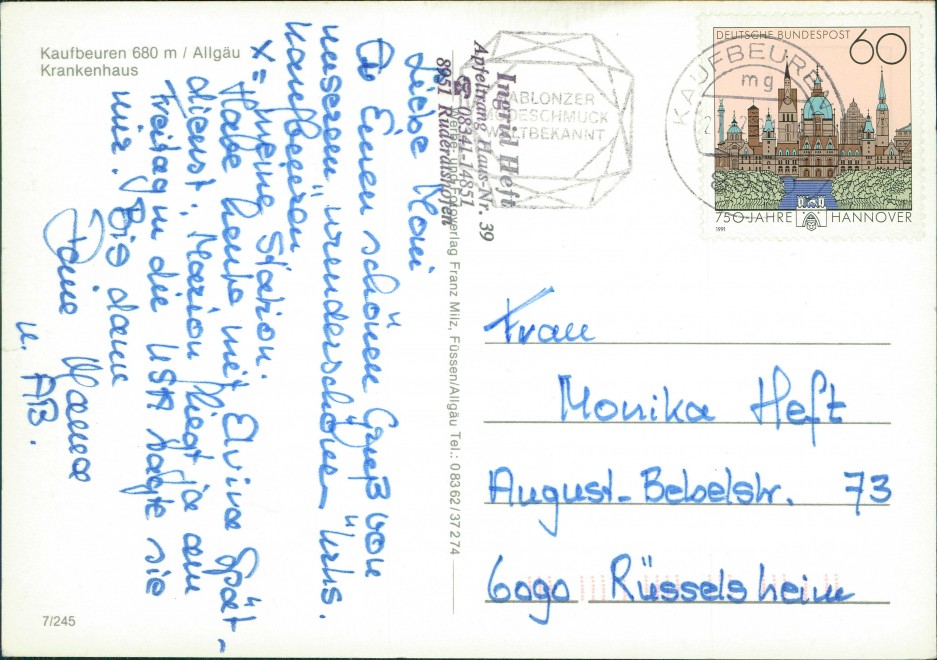 Kaufbeuren 680 m / Allgäu
Krankenhaus
Ingrid Heft
Apfeltrang Haus-Nr. 39
☎ 08341-14851
8951 Ruderatshofen
Liebe Moni
Einen schönen Gruß von
unserem wunderschönen Krhs.
Kaufbeuren
X = meine Station.
Habe heute mit Elvira Spät-
dienst. Marion fliegt ja am
Freitag in die USA sagte sie
mir. Bis dann
Deine Mama
u. AB.
7/245
Fotoverlag Franz Milz, Füssen/Allgäu Tel.: 08362/37274
JABLONZER
MODESCHMUCK
WELTBEKANNT
KAUFBEUREN
mg
DEUTSCHE BUNDESPOST 60
750 JAHRE HANNOVER
1991
Frau
Monika Heft
August-Bebelstr. 73
6090 Rüsselsheim